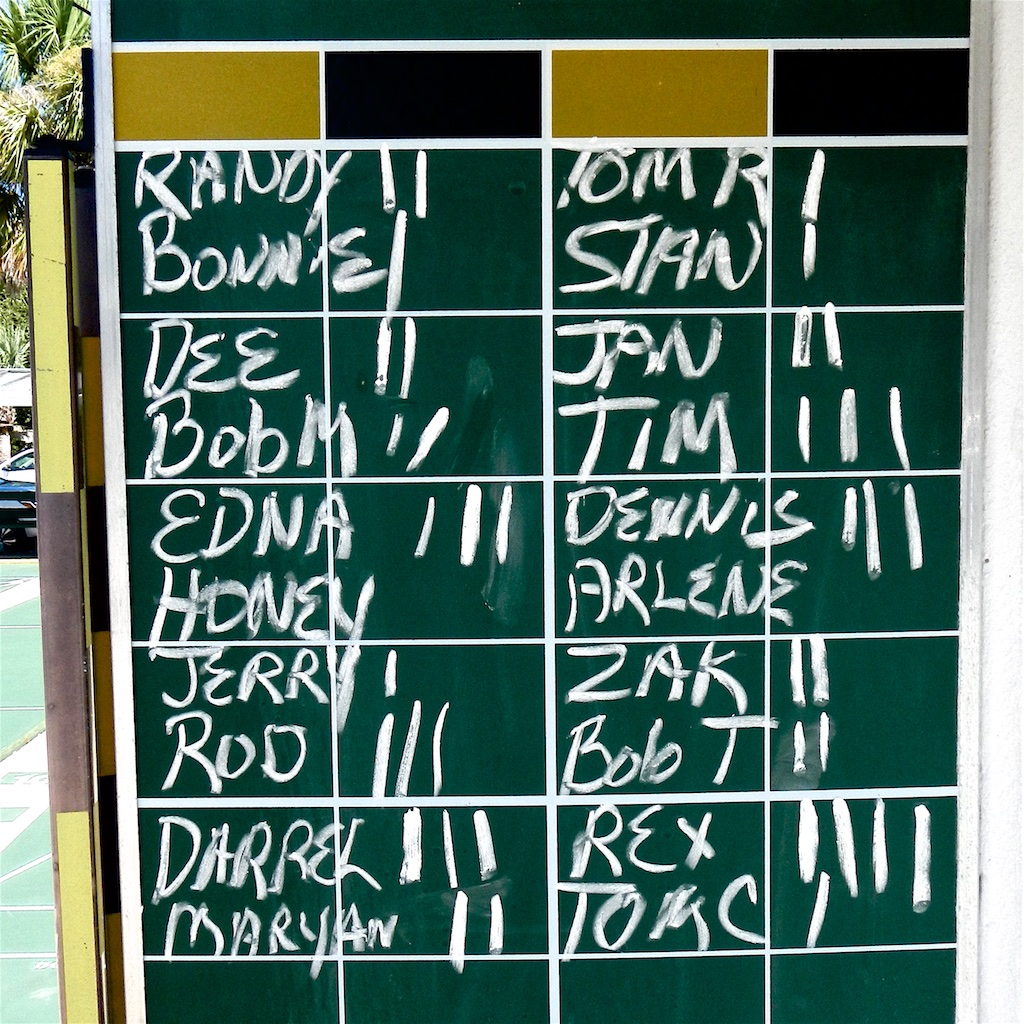 RANDY II TOM R I
BONNIE I STAN I
DEE II JAN II
BobM II TIM III
EDNA III DENNIS III
HONEY ARLENE
JERRY I ZAK II
ROD III Bob T II
DARREL III REX IIII
MARYAN II TOM C I